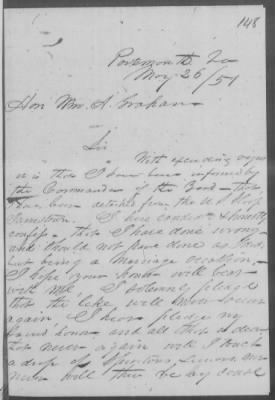 148
Portsmouth Va
May 26 / 51
Hon Wm. A. Graham
Sir
With exceeding regret
it is that I have been informed by
the Commander of the Board that
I have been detached from the U.S. Sloop
Jamestown. I here candidly & honestly
confess that I have done wrong
and should not have done as I did,
but being a Marriage occasion,
I hope your honor will bear
with me. I solemnly pledge
that the like will never occur
again. I here pledge my
sacred honor and all that is dear
that never again will I touch
a drop of Spiritous Liquors, and
never will there be any cause